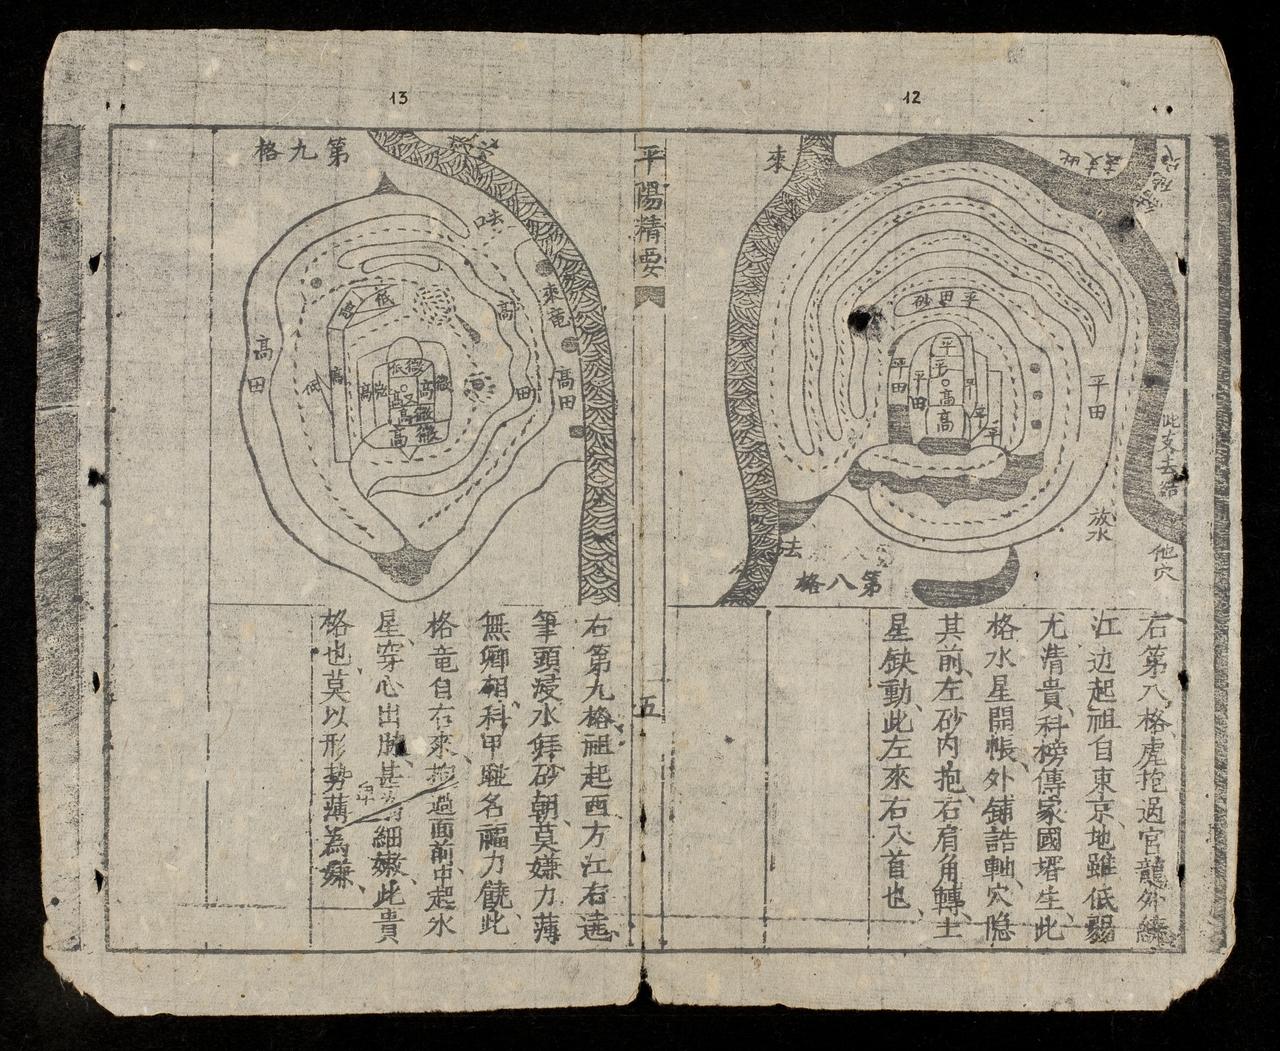 12
來
此支去
他穴
平田砂
平
平
高
高
平田
平田
平
平
平
平田
此支去結
放水
他穴
法
第八格
右第八格虎抱過官龍外繞
江边起祖自東京地雖低弱
尤清貴科榜傳家國壻生此
格水星開帳外鋪誥軸穴隐
其前左砂內抱右肩角轉土
星缺動此左來右入首也
平陽精要
五
13
第九格
法
來竜
高
田
高田
高田
低
低
高
高微
低微
高
高微
高微
高微
右第九格祖起西方江右遶
筆頭浸水拜砂朝莫嫌力薄
無卿相科甲聯名福力饒此
格竜自右來抱過面前中起水
星穿心出脈甚為細嫩此貴
格也莫以形势薄為嫌